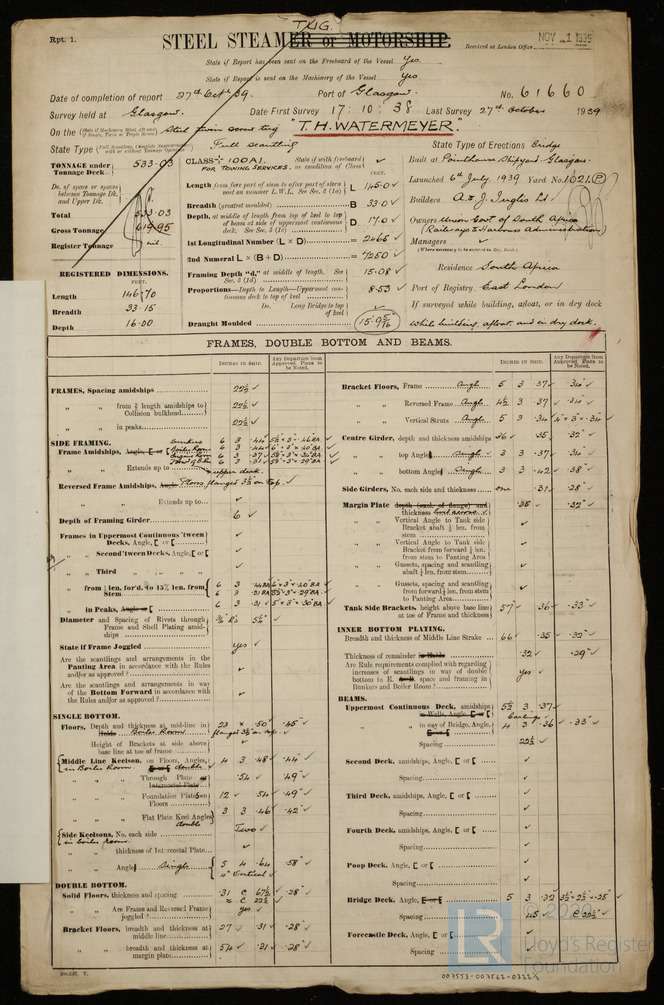 Rpt. 1.
TUG.
STEEL STEAMER or MOTORSHIP.
Received at London Office
NOV 1 1939
State if Report has been sent on the Freeboard of the Vessel Yes.
State if Report is sent on the Machinery of the Vessel Yes.
Date of completion of report 27th Oct. 39. Port of Glasgow. No. 61660
Survey held at Glasgow. Date First Survey 17:10:38 Last Survey 27th October 1939
On the (State if Machinery fitted Aft and if Single, Twin or Triple Screw) Steel twin screw tug "T.H.WATERMEYER."
State Type Full scantling State Type of Erections Bridge
TONNAGE under Tonnage Deck 533.03
Do. of space or spaces between Tonnage Dk. and Upper Dk.
Total 533.03
Gross Tonnage 619.95
Register Tonnage nil.
CLASS + 100A1. State if with freeboard as condition of Class
FOR TOWING SERVICES.
FEET.
Length from fore part of stem to after part of stern post on summer L.W.L. See Sec. 3 (1a) L 145.0
Breadth (greatest moulded) B 33.0
Depth, at middle of length from top of keel to top of beam at side of uppermost continuous deck. See Sec. 3 (1c) D 17.0
1st Longitudinal Number (L × D) = 2465
2nd Numeral L × (B + D) = 7250
Framing Depth "d," at middle of length. See Sec. 3 (1d) 15.08
Proportions—Depth to Length—Uppermost continuous deck to top of keel 8.53
Do. Long Bridge to top of keel
Draught Moulded 15'-9 5/16"
Built at Pointhouse Shipyard Glasgow.
Launched 6th July 1939 Yard No. 1021 P
Builders A. & J. Inglis Ltd
Owners Union Govt of South Africa (Railways & Harbours Administration)
Managers
(Where necessary to be entered in Reg. Book.)
Residence South Africa
Port of Registry East London
If surveyed while building, afloat, or in dry dock
While building, afloat and in dry dock.
REGISTERED DIMENSIONS.
FEET.
Length 146.70
Breadth 33.15
Depth 16.00
FRAMES, DOUBLE BOTTOM AND BEAMS.
INCHES IN SHIP.
Any Departure from Approved Plans to be Noted.
FRAMES, Spacing amidships 22½
" " from ⅗ length amidships to Collision bulkhead 22½
" " in peaks 22½
SIDE FRAMING.
Frame Amidships, Angle, [ or
Extends up to upper deck.
Reversed Frame Amidships, Angle Floors flanged 3½ on top.
Extends up to
Depth of Framing Girder 6
Frames in Uppermost Continuous 'tween Decks, Angle, [ or [
" " Second 'tween Decks, Angle, [ or [
" " Third " "
" " from ⅕ len. for'd. to 15% len. from Stem 6 3 .44 BA 6 × 3 × .40 BA
6 3 .31 BA 5½ × 3 × .29 BA
" " in Peaks, Angle or [ 6 3 .31 5 × 3 × .30 BA
Diameter and Spacing of Rivets through Frame and Shell Plating amidships ¾ R's 5¼"
State if Frame Joggled yes
Are the scantlings and arrangements in the Panting Area in accordance with the Rules and/or as approved?
Are the scantlings and arrangements in way of the Bottom Forward in accordance with the Rules and/or as approved?
SINGLE BOTTOM.
Floors, Depth and thickness at mid-line in Holds Boiler Room 23 × .50 .45"
flanged 3½ on top.
Height of Brackets at side above base line at toe of frame
Middle Line Keelson, on Floors, Angles, double in Boiler Room 4 3 .48 .44"
" " Through Plate or Intercostal Plate .54 .49"
" " Foundation Plate on Floors 12 .54 .49"
" " Flat Plate Keel Angles double 3 3 .46 .42"
Side Keelsons, No. each side Two
in boiler room
" " thickness of Intercostal Plate
" " Angle Single 5 4 .64 .58"
4" Vertical
DOUBLE BOTTOM.
Solid Floors, thickness and spacing .31 @ 67½ .28"
& @ 22½
" " Are Frame and Reversed Frame joggled? yes
Bracket Floors, breadth and thickness at middle line 27 .31 .28"
" " breadth and thickness at margin plate 54 .31 .28"
Bracket Floors, Frame Angle 5 3 .37 .34"
" " Reversed Frame Angle 4½ 3 .37 .34"
" " Vertical Struts Angle 5 3 .34 4" × 3" × .34
Centre Girder, depth and thickness amidships 36 .35 .32"
" " top Angle single 3 3 .37 .34"
" " bottom Angle single 3 3 .42 .38"
Side Girders, No. each side and thickness one .31 .28"
Margin Plate depth (excl. of flange) and thickness .35 .32"
" " Vertical Angle to Tank side Bracket abaft ¼ len. from stem
" " Vertical Angle to Tank side Bracket from forward ¼ len. from stem to Panting Area
" " Gussets, spacing and scantling abaft ¼ len. from stem
" " Gussets, spacing and scantling from forward ¼ len. from stem to Panting Area
Tank Side Brackets, height above base line at toe of Frame and thickness 57" .36 .33"
INNER BOTTOM PLATING.
Breadth and thickness of Middle Line Strake 66 .35 .32"
Thickness of remainder in Holds .32 .29"
Are Rule requirements complied with regarding increases of scantlings in way of double bottom in E. space and framing in Bunkers and Boiler Room? yes
BEAMS.
Uppermost Continuous Deck, amidships 5½ 3 .37
in Wells, Angle, [ or [
" " in way of Bridge, Angle, [ or [ 4 3 .36 .33"
Spacing 22½
Second Deck, amidships, Angle, [ or [
Spacing
Third Deck, amidships, Angle, [ or [
Spacing
Fourth Deck, amidships, Angle, [ or [
Spacing
Poop Deck, Angle, [ or [
Spacing
Bridge Deck, Angle, [ or [ 5 3 .32 3½ × 2½ × .25"
Spacing 45 @ 22½"
Forecastle Deck, Angle, [ or [
Spacing
007553-007562-0222½
© 2020
LR
Lloyd's Register
Foundation